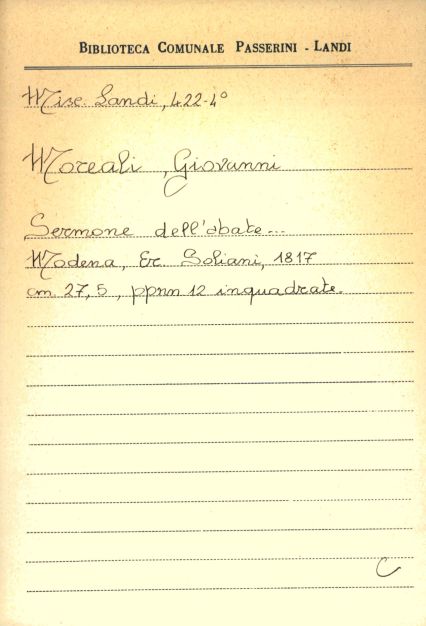 BIBLIOTECA COMUNALE PASSERINI - LANDI
Misc. Landi, 422-4°
Moreali, Giovanni
Sermone dell'abate...
Modena, Er. Soliani, 1817
cm. 27,5, ppnn 12 inquadrate.
C